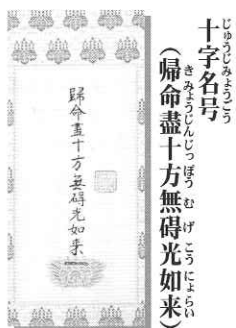 十字名号
じゅうじみょうごう
(帰命盡十方無碍光如来)
きみょうじんじっぽうむげこうにょらい
歸命盡十方無碍光如来